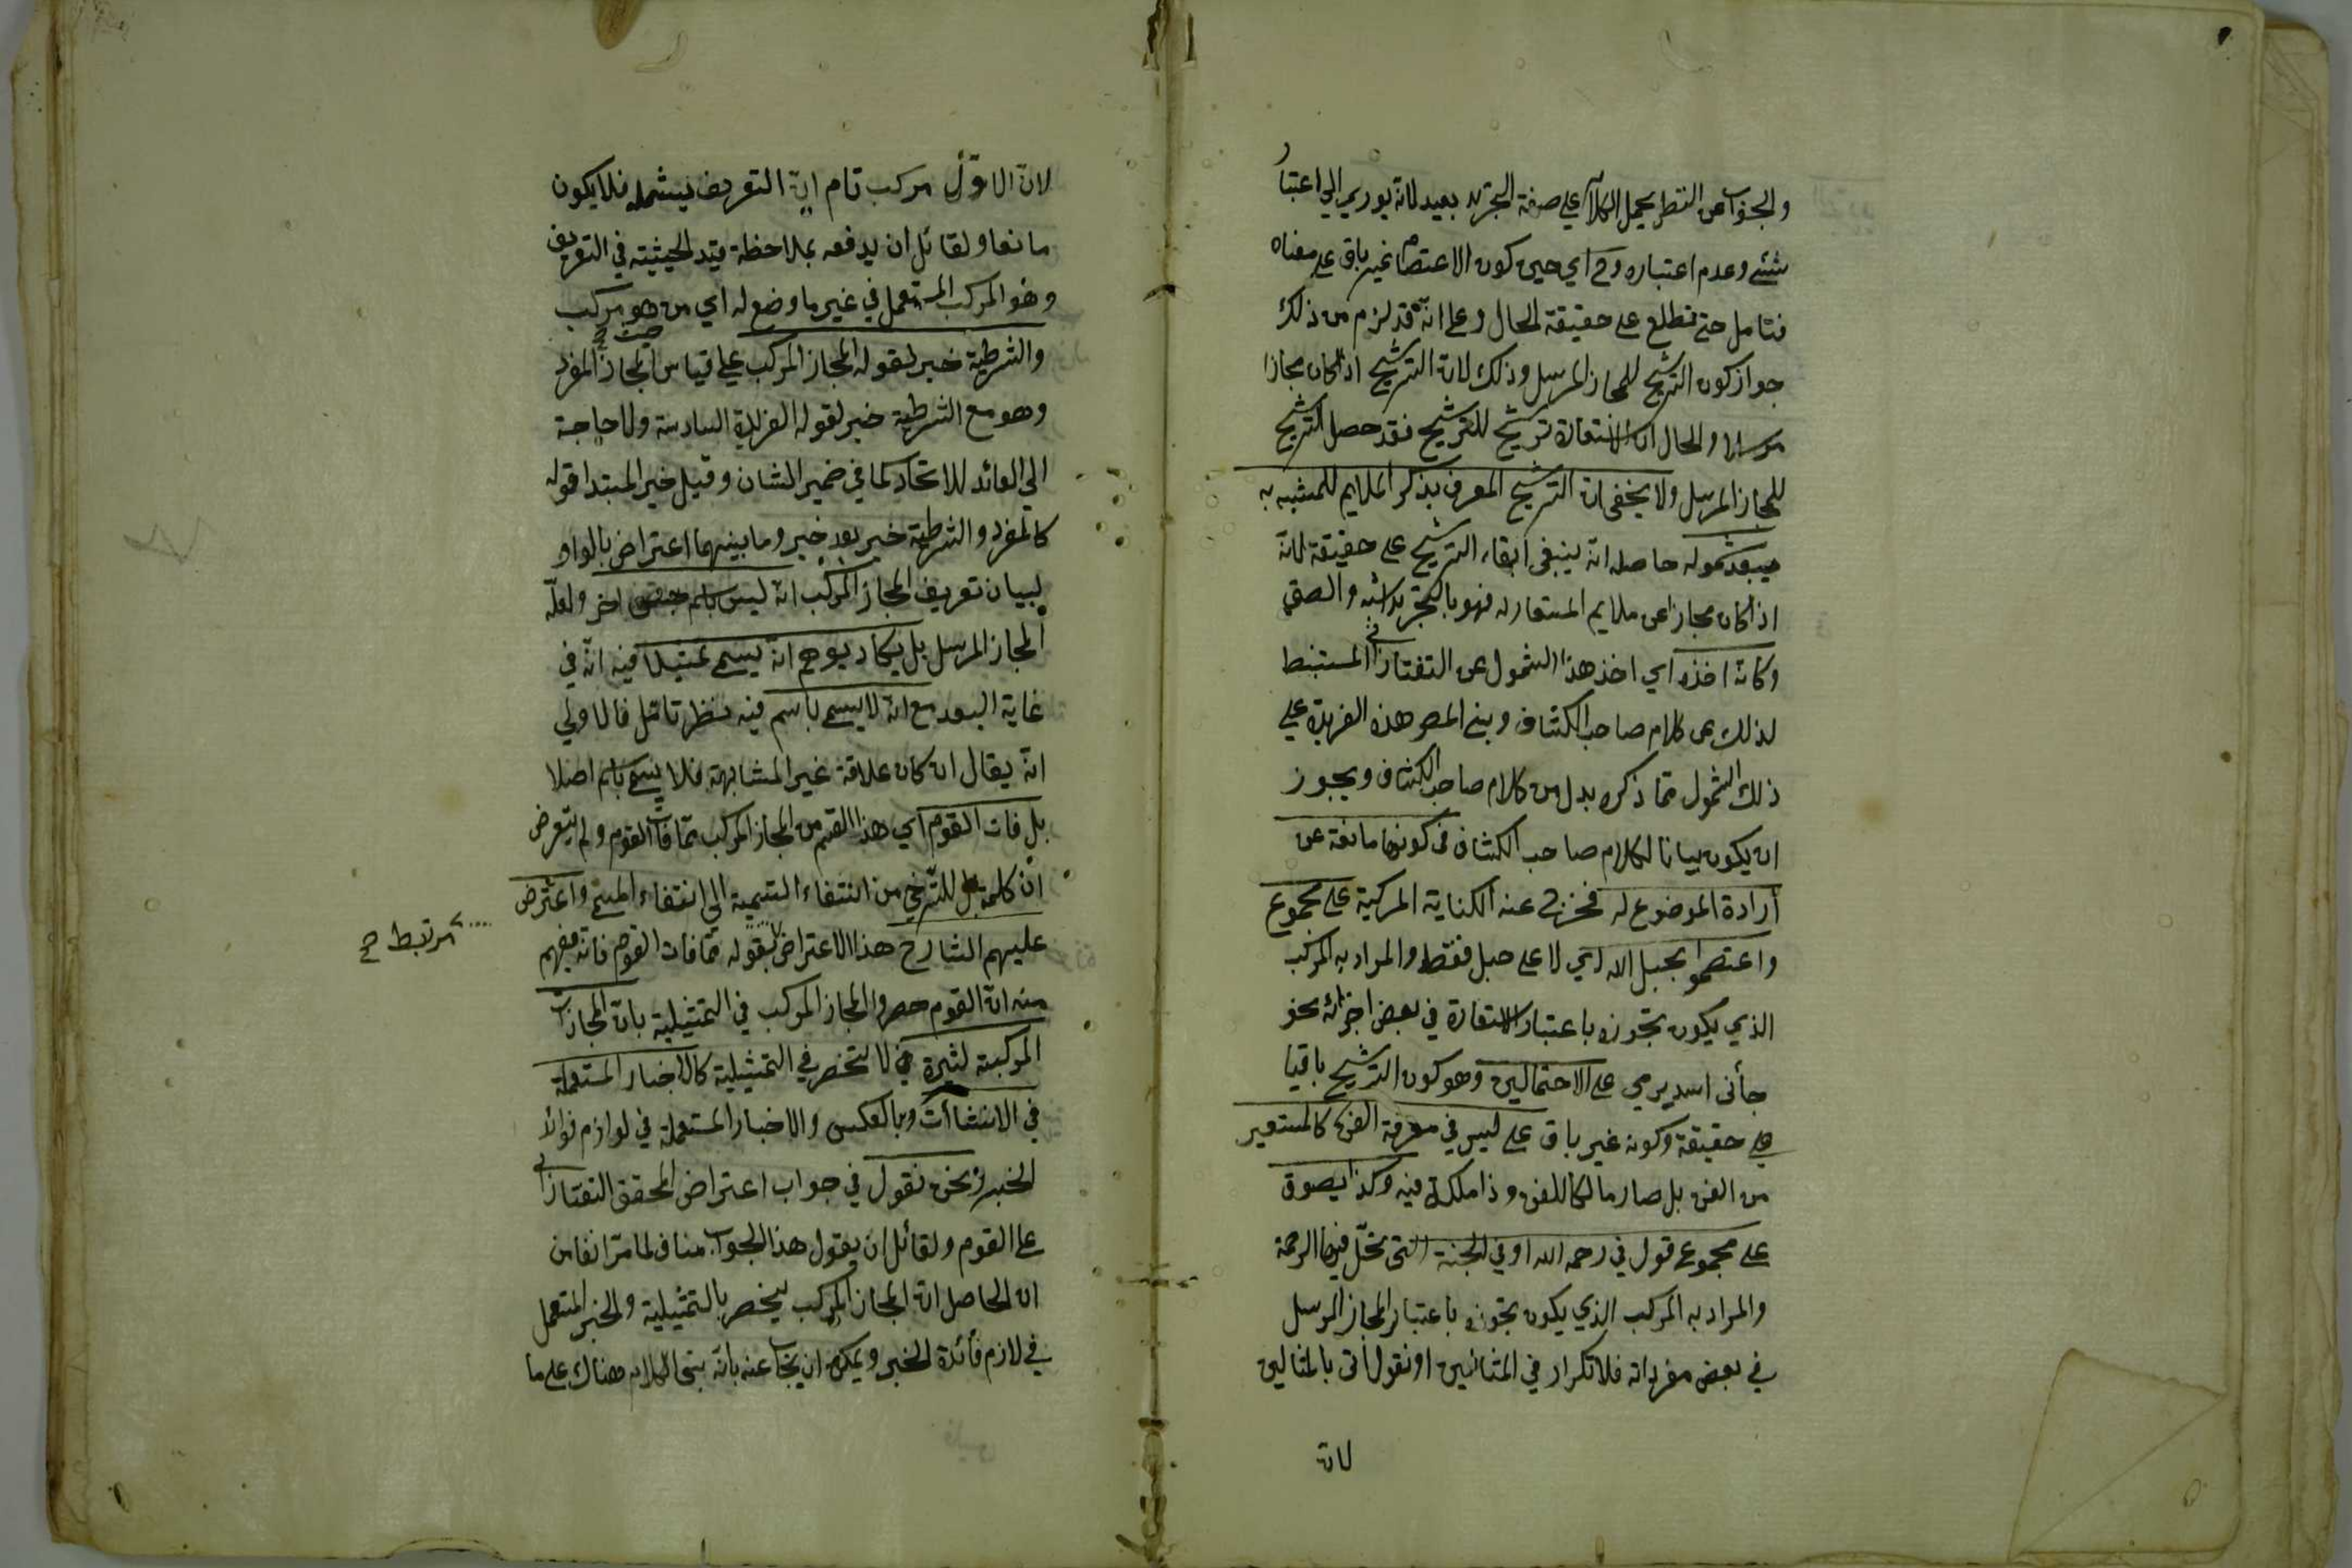 والجواب عن النظر بحمل الكلام علي صفة التجريد بعيد لانه يودي الي اعتبار
شئ وعدم اعتباره وح اي حين كون الاعتصام غير باق علي معناه
فتامل حتي تطلع علي حقيقة الحال وعلي انه قد لزم من ذلك
جواز كون الترشيح للمجاز المرسل وذلك لان الترشيح اذا كان مجازا
مرسلا والحال ان الاستعارة ترشيح للترشيح فقد حصل الترشيح
للمجاز المرسل ولا يخفي ان الترشيح المعرف بذكر الملايم للمشبه به
يبعد شموله حاصله انه ينبغي ابقاء الترشيح علي حقيقة لانه
اذا كان مجازا عن ملايم المستعار له فهو بالتجريد اشبه والصق
وكانه اخذه اي اخذ هذا الشمول عن التفتازاني المستنبط
لذلك عن كلام صاحب الكشاف وبني المص هذه الفريدة علي
ذلك الشمول مما ذكره بدل من كلام صاحب الكشاف ويجوز
ان يكون بيانا لكلام صاحب الكشاف في كونها مانعة عن
أرادة الموضوع له فخرج عنه الكناية المركبة علي مجموع
واعتصموا بحبل الله اي لا علي حبل فقط والمراد به المركب
الذي يكون تجوزه باعتبار الاستعارة في بعض اجزائه نحو
جأنى اسد يرمي علي الاحتمالين وهو كون الترشيح باقيا
علي حقيقة وكونه غير باق علي ليس في معرفة الفن كالمستعير
من الفن بل صار مالكا للفن وذا ملكة فيه وكذا يصوق
علي مجموع قول في رحمه الله او في الجنة التي تحل فيها الرحمة
والمراد به المركب الذي يكون تجوزه باعتبار المجاز المرسل
في بعض مفرداته فلا تكرار في المثالين او نقول أتى بالمثالين
لان
لان الاول مركب تام ان التعريف يشمله فلا يكون
مانعا ولقائل ان يدفعه بملاحظة قيد الحيثية في التعريف
وهو المركب المستعمل في غير ما وضع له اي من حيث هو مركب
والشرطية خبر لقوله المجاز المركب علي قياس المجاز المفرد
وهو مع الشرطية خبر لقوله الفريدة السادسة ولا حاجة
الي العائد للاتحاد كما في ضمير الشان وقيل خبر المبتدا قوله
كالمفرد والشرطية خبر بعد خبر وما بينهما اعتراض بالواو
لبيان تعريف المجاز المركب انه ليس باسم اخر ولعله
المجاز المرسل بل يكاد يوهم انه يسمي تمثيلا فيه انه في
غاية البعد مع انه لا يسمي باسم فيه نظر تامل فالاولي
ان يقال ان كان علاقة غير المشابهة فلا يسمي باسم اصلا
بل فات القوم اي هذا القسم من المجاز المركب مما فات القوم ولم يتعرض
ان كلمة بل للترقي من انتفاء التسمية الي انتفاء المسمي واعترض
عليهم الشارح هذا الاعتراض بقوله مما فات القوم فانه يفهم
مرتبط ح
منه ان القوم حصروا المجاز المركب في التمثيلية بان المجازات
المركبة كثيرة لا تنحصر في التمثيلية كالاخبار المستعملة
في الانشاأت وبالعكس والاخبار المستعملة في لوازم فوائد
الخبر ونحن نقول في جواب اعتراض المحقق التفتازاني
علي القوم ولقائل ان يقول هذا الجواب مناف لما مر انفا من
ان الحاصل ان المجاز المركب ينحصر بالتمثيلية والخبر المستعمل
في لازم فأئدة الخبر ويمكن ان يجاب عنه بانه بني الكلام هناك علي ما